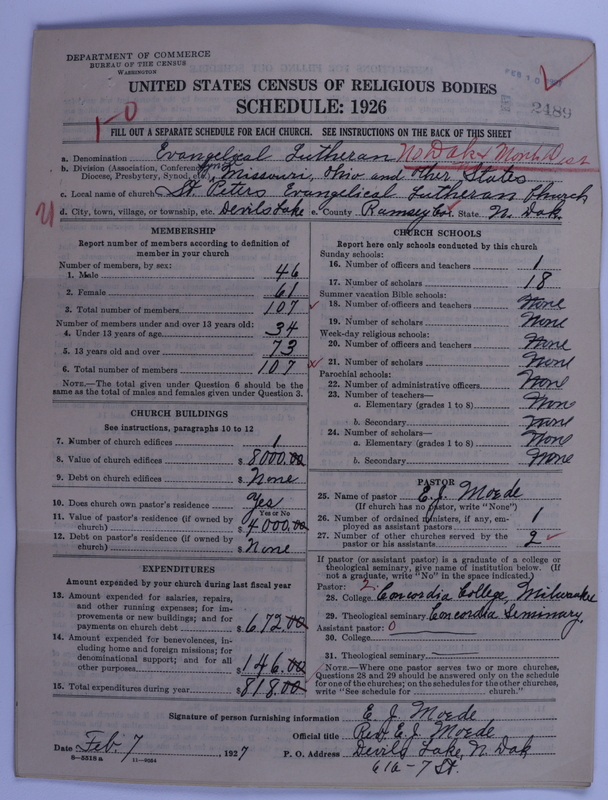 DEPARTMENT OF COMMERCE
BUREAU OF THE CENSUS
WASHINGTON
UNITED STATES CENSUS OF RELIGIOUS BODIES
SCHEDULE: 1926
FEB 10
2489
1-0
FILL OUT A SEPARATE SCHEDULE FOR EACH CHURCH. SEE INSTRUCTIONS ON THE BACK OF THIS SHEET
a. Denomination Evangelical Lutheran No Dak & Mont. Dist
b. Division (Association, Conference, Diocese, Presbytery, Synod, etc.) Synd. Missouri, Ohio and Other States
c. Local name of church St. Peters Evangelical Lutheran Church
d. City, town, village, or township, etc. Devils Lake e. County Ramsey Co. f. State N. Dak.
MEMBERSHIP
Report number of members according to definition of
member in your church
Number of members, by sex:
1. Male 46
2. Female 61
3. Total number of members 107
Number of members under and over 13 years old:
4. Under 13 years of age 34
5. 13 years old and over 73
6. Total number of members 107
NOTE.—The total given under Question 6 should be the
same as the total of males and females given under Question 3.
CHURCH BUILDINGS
See instructions, paragraphs 10 to 12
7. Number of church edifices 1
8. Value of church edifices $8000.00
9. Debt on church edifices $None
10. Does church own pastor's residence Yes
Yes or No
11. Value of pastor's residence (if owned by
church) $4000.00
12. Debt on pastor's residence (if owned by
church) $None
EXPENDITURES
Amount expended by your church during last fiscal year
13. Amount expended for salaries, repairs,
and other running expenses; for im-
provements or new buildings; and for
payments on church debt $672.00
14. Amount expended for benevolences, in-
cluding home and foreign missions; for
denominational support; and for all
other purposes $146.00
15. Total expenditures during year $818.00
CHURCH SCHOOLS
Report here only schools conducted by this church
Sunday schools:
16. Number of officers and teachers 1
17. Number of scholars 18
Summer vacation Bible schools:
18. Number of officers and teachers None
19. Number of scholars None
Week-day religious schools:
20. Number of officers and teachers None
21. Number of scholars None
Parochial schools:
22. Number of administrative officers None
23. Number of teachers—
a. Elementary (grades 1 to 8) None
b. Secondary None
24. Number of scholars—
a. Elementary (grades 1 to 8) None
b. Secondary None
PASTOR
25. Name of pastor E. J. Moede
(If church has no pastor, write "None")
26. Number of ordained ministers, if any, em-
ployed as assistant pastors 1
27. Number of other churches served by the
pastor or his assistants 2
If pastor (or assistant pastor) is a graduate of a college or
theological seminary, give name of institution below. (If
not a graduate, write "No" in the space indicated.)
Pastor: 2
28. College Concordia College, Milwaukee
29. Theological seminary Concordia Seminary.
Assistant pastor: 0
30. College
31. Theological seminary
NOTE.—Where one pastor serves two or more churches,
Questions 28 and 29 should be answered only on the schedule
for one of the churches; on the schedules for the other churches,
write "See schedule for church."
Signature of person furnishing information E. J. Moede
Official title Rev. E. J. Moede
Date Feb. 7, 1927 P. O. Address Devils Lake, N. Dak
616-7 St.
8-5518 a 11-9554